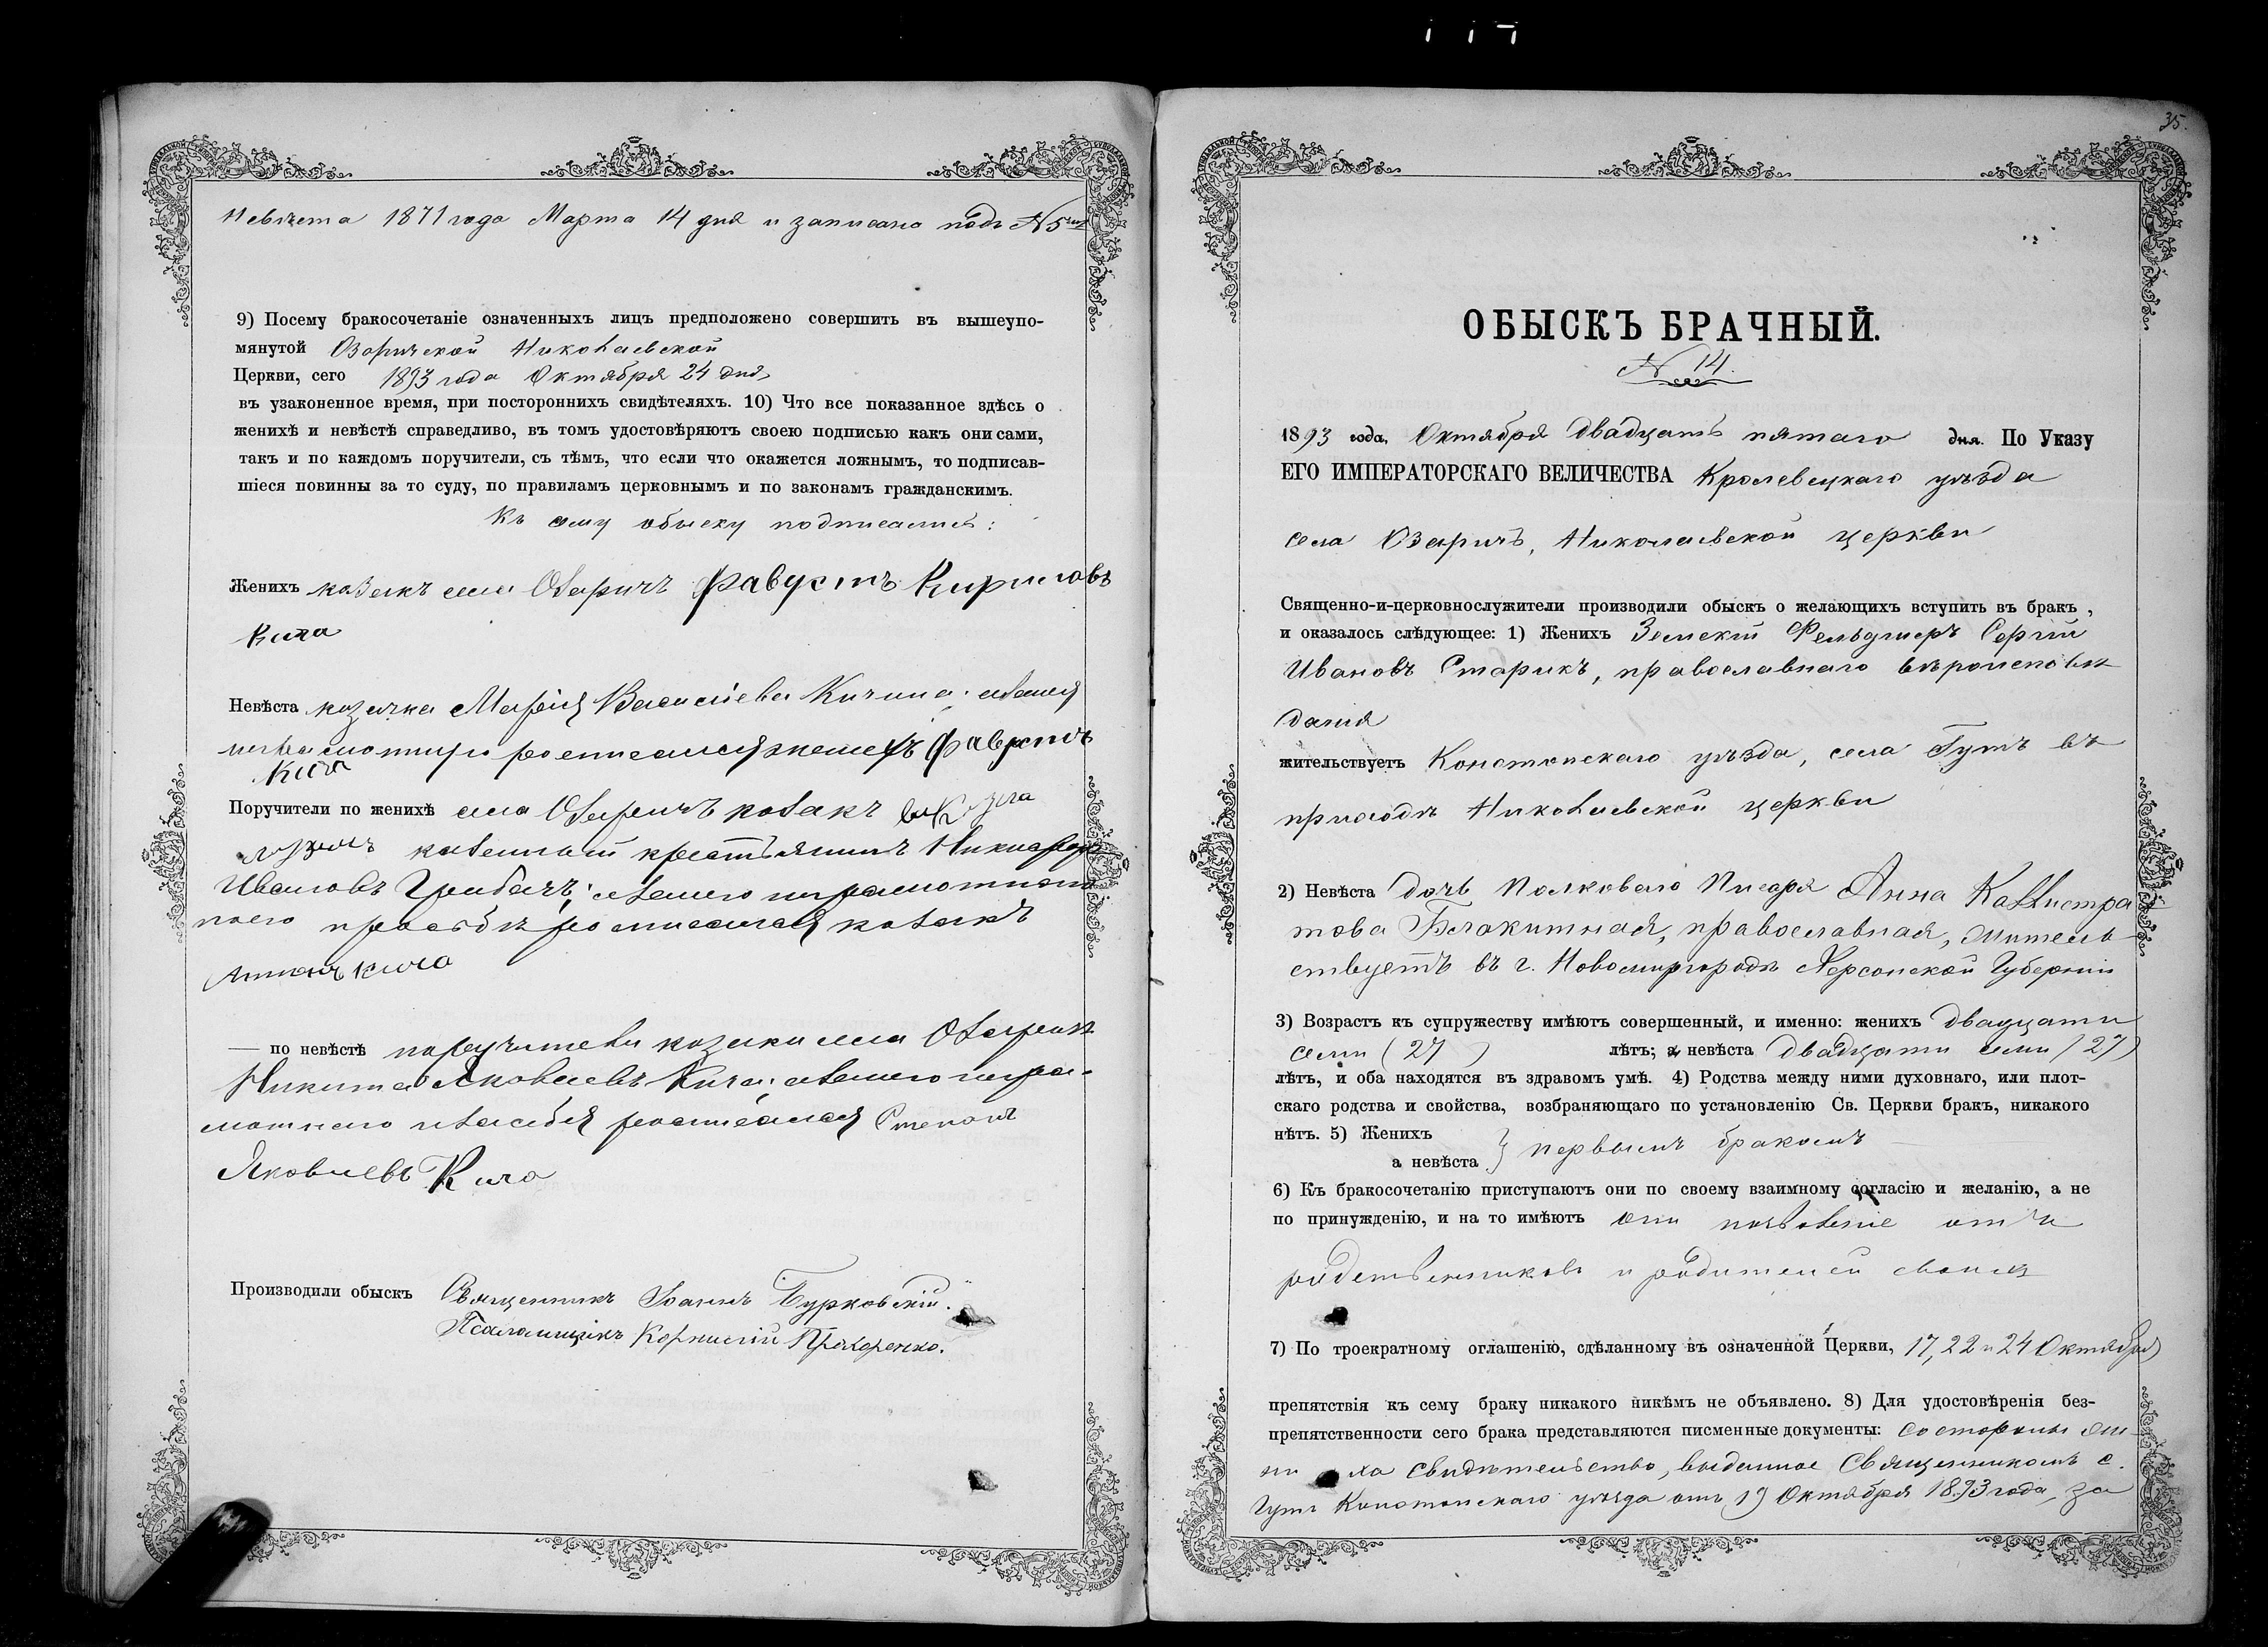 невѣста 1871 года Марта 14 дня и записано подъ N 5мъ
9) Посему бракосочетаніе означенныхъ лицъ предположено совершить въ вышеупо-
мянутой Озаричской Николаевской
Церкви, сего 1893 года Октября 24 дня,
въ узаконенное время, при постороннихъ свидѣтеляхъ. 10) Что все показанное здѣсь о
женихѣ и невѣстѣ справедливо, въ томъ удостовѣряютъ своею подписью какъ они сами,
такъ и по каждомъ поручители, съ тѣмъ, что если что окажется ложнымъ, то подписав-
шіеся повинны за то суду, по правиламъ церковнымъ и по законамъ гражданскимъ.
Къ сему обыску подписались:
Женихъ козакъ села Озаричъ Фавустъ Кириловъ
Кича
Невѣста козачка Марія Василіева Кичина; а за нея
неграмотную росписался женихъ Фавустъ
Кича
Поручители по женихѣ села Озаричъ козакъ
казенный крестьянинъ Никифоръ
Ивановъ Грибачъ; а за него неграмотнаго
по его просьбѣ росписался козакъ
Антонъ Кича
— по невѣстѣ поручители козаки села Озаричъ
Никита Яковлевъ Кича; а за него негра-
мотнаго и за себя росписался Степанъ
Яковлевъ Кича
Производили обыскъ Священникъ Іоаннъ Бурковскій.
Псаломщикъ Корнилій Прохоренко.
35.
ОБЫСКЪ БРАЧНЫЙ.
N 14.
1893 года, Октября двадцать пятаго дня. По Указу
ЕГО ИМПЕРАТОРСКАГО ВЕЛИЧЕСТВА Кролевецкаго уѣзда
села Озаричъ, Николаевской церкви
Священно-и-церковнослужители производили обыскъ о желающихъ вступить въ бракъ,
и оказалось слѣдующее: 1) Женихъ Земскій Фельдшеръ Сергій
Ивановъ Старикъ, православнаго вѣроисповѣ
данія
жительствуетъ Конотопскаго уѣзда, села Гутъ въ
приходѣ Николаевской церкви
2) Невѣста дочь Полковаго Писаря Анна Каллистра
това Блакитная, православная, житель
ствуетъ въ г. Новомиргородѣ Херсонской Губерніи
3) Возрастъ къ супружеству имѣютъ совершенный, и именно: женихъ двадцати
семи (27) лѣтъ; а невѣста двадцати семи (27)
лѣтъ, и оба находятся въ здравомъ умѣ. 4) Родства между ними духовнаго, или плот-
скаго родства и свойства, возбраняющаго по установленію Св. Церкви бракъ, никакого
нѣтъ. 5) Женихъ
а невѣста } первымъ бракомъ
6) Къ бракосочетанію приступаютъ они по своему взаимному согласію и желанію, а не
по принужденію, и на то имѣютъ они позволеніе отъ
родственниковъ и родителей своихъ
7) По троекратному оглашенію, сдѣланному въ означенной Церкви, 17, 22 и 24 Октября
препятствія къ сему браку никакого никѣмъ не объявлено. 8) Для удостовѣренія без-
препятственности сего брака представляются писменные документы: со стороны же
ни ха свидѣтельство, выданное Священникомъ с.
Гутъ Конотопскаго уѣзда отъ 19 Октября 1893 года, за